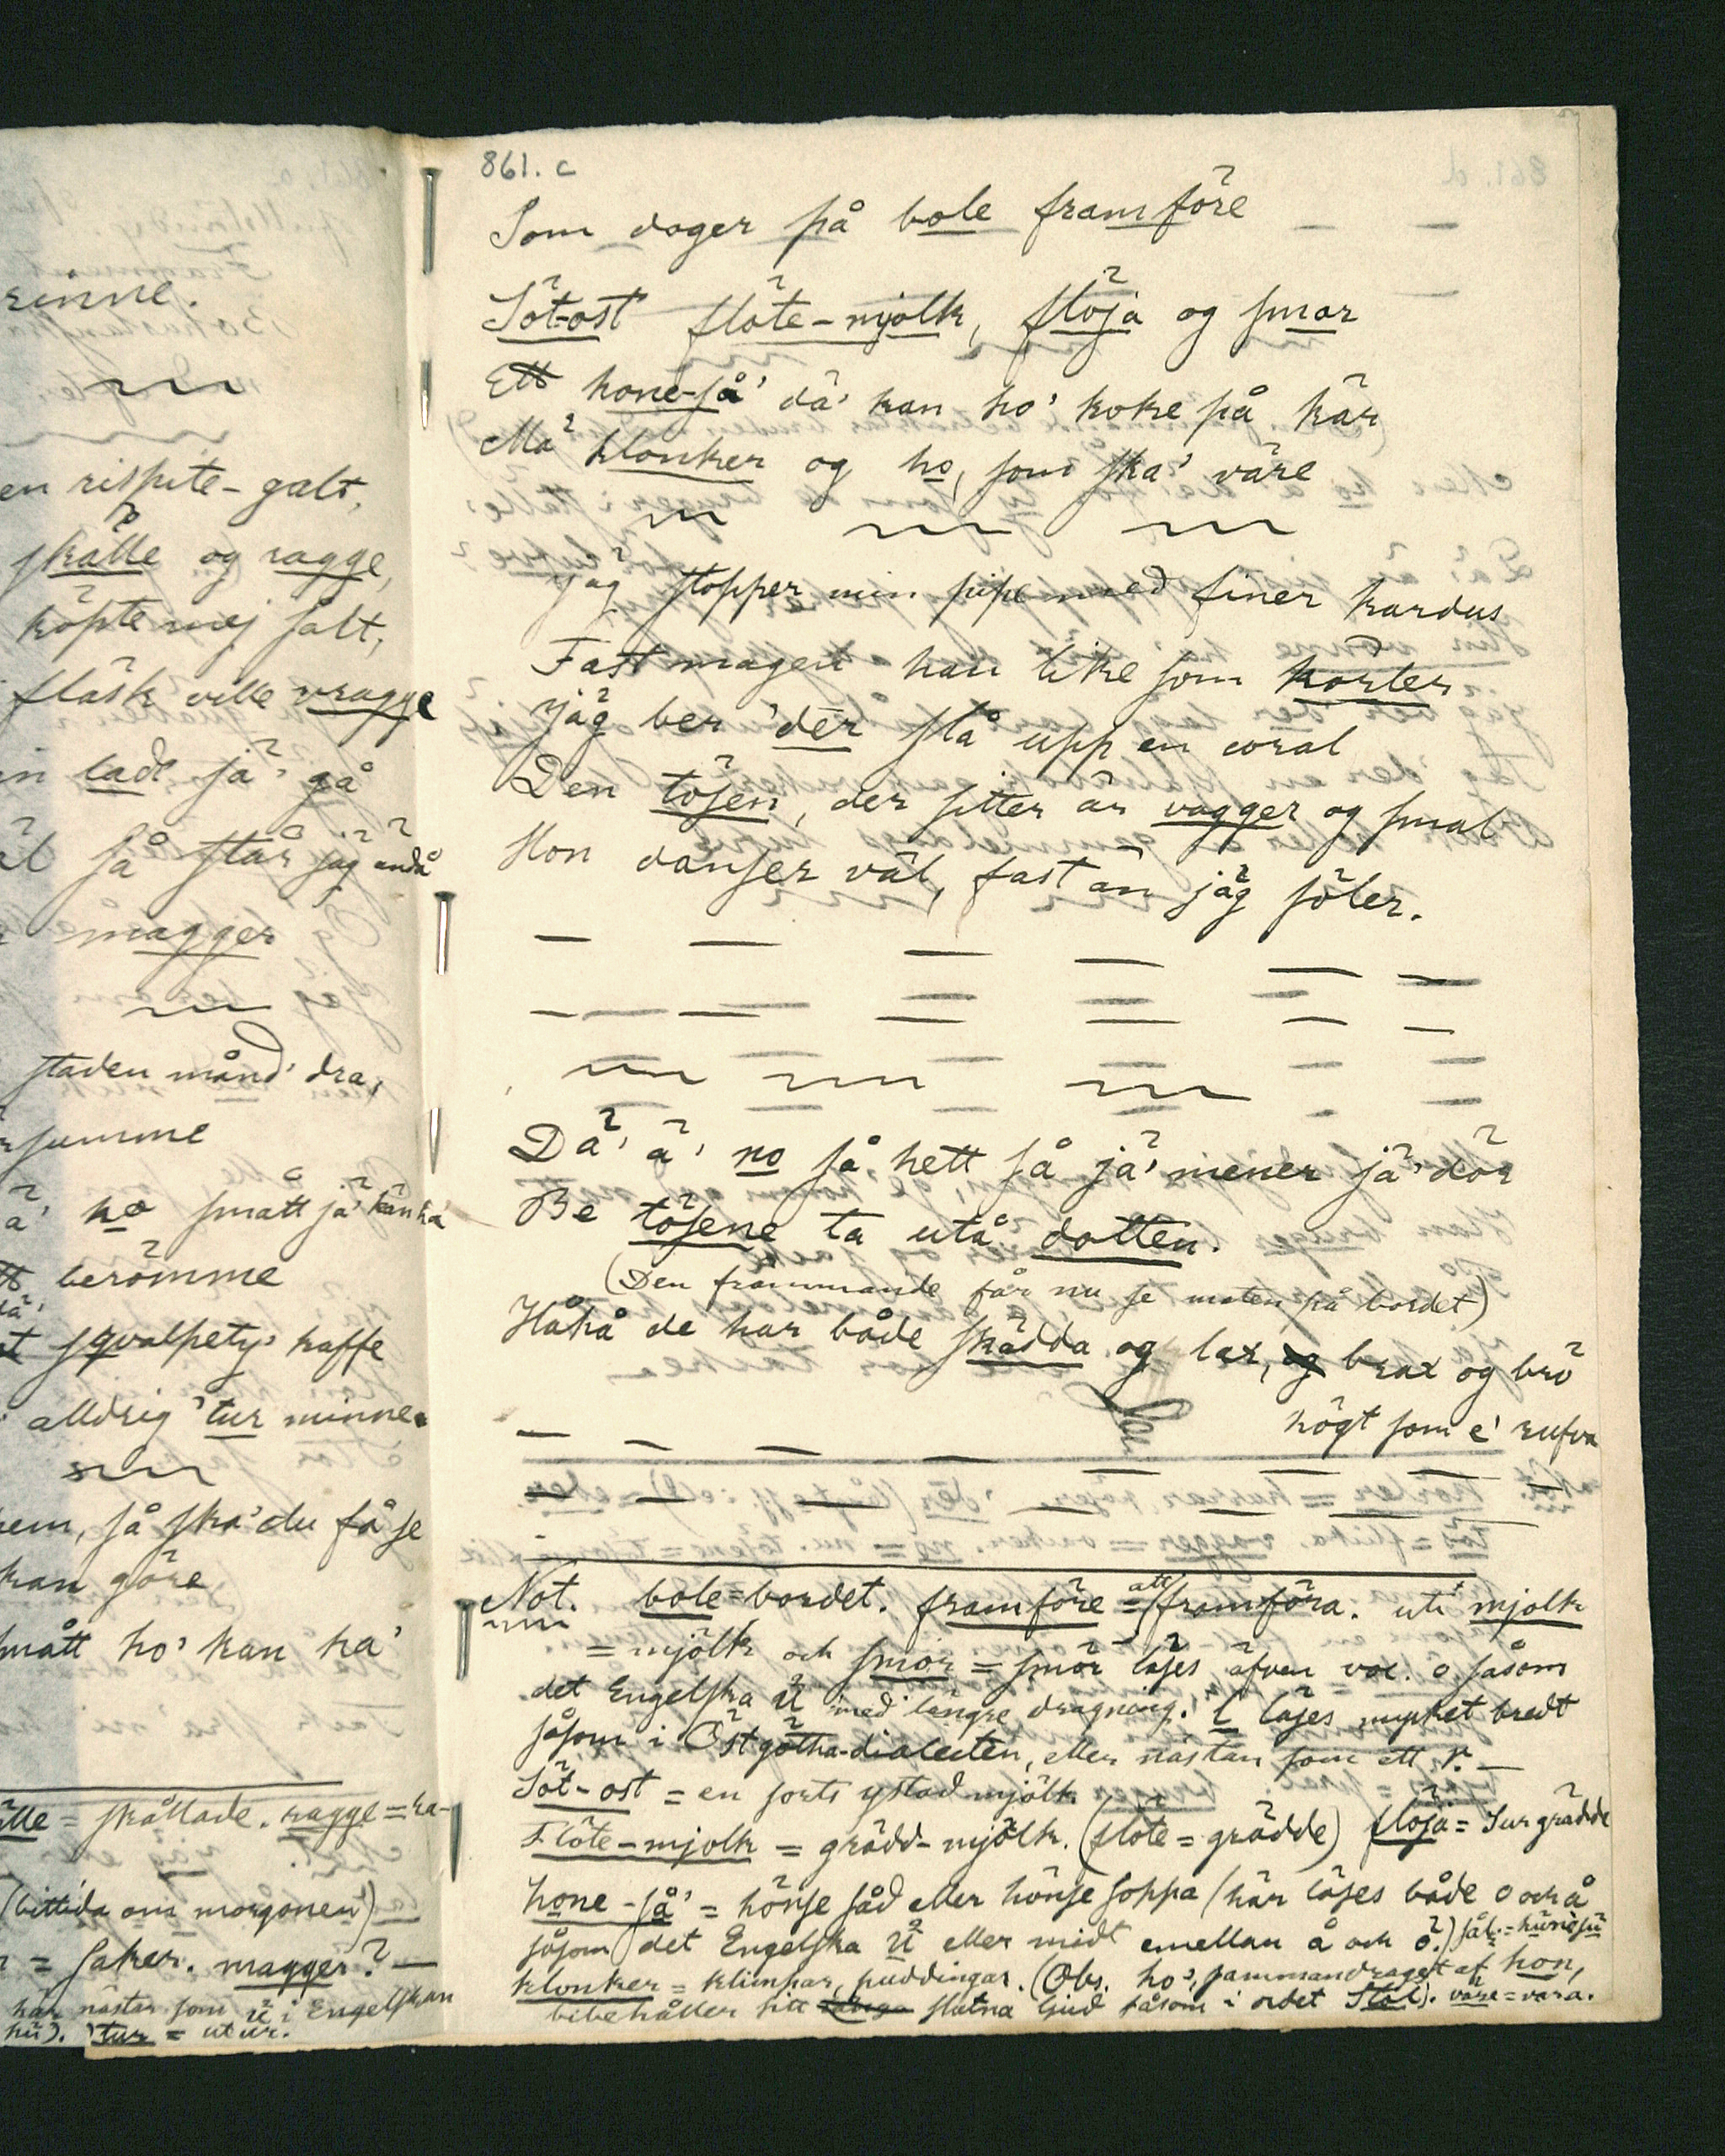 861. c
Som dager på bole framföre — —
Söt-ost flöte-mjolk, flöja og smor
Ett hone-så' dä' kan ho' koke på kär
Mä klonker og ho, som ska' väre
jäg stopper min pipe med finer kardus
Fast magen han like som korler
jäg ber 'dér slå upp en coral
Den tösen, der sitter är vagger og smal
Hon danser väl, fast än jäg söler.
— — — — — —
— — — — — —
Dä' ä' no så hett så jä' mener jä' dör
Be tösene ta utå dotten.
(Den främmande får nu se maten på bordet)
Håhå de har både skädda og lax, og brax og brö
högt som e' rufva
— — — — — — —
— — — — — —
Not. bole = bordet. framföre = att framföra. uti mjolk
= mjölk och smor = smör läses äfven voc. o såsom
det Engelska u med längre dragning. l läses mycket bredt
såsom i Östgötha-dialecten, eller nästan som ett r. —
Söt-ost = en sorts ystad mjölk
Flöte-mjolk = grädd-mjölk. (flöte = grädde) flöja = Sur grädde
hone-så' = hönse såd eller hönse soppa (här läses både o och å
såsom det Engelska u eller midt emellan å och ö.)
klonker = klimpar, puddingar. (Obs. ho', sammandraget af hon,
bibehåller sitt slutna ljud såsom i ordet Stol). väre = vara.
rinne.
en rispite-galt,
skålle og ragge,
köpte mej salt,
fläsk ville vragge
in lade jä' gå
så står jag ändå
magger
staden månd' dra,
summe
ä' no smått jä' kan ha
berömme
sqvalpety' kaffe
alldrig 'tur minne.
hem, så ska' du få se
kan göre,
smått ho' kan ha'
ålle = skållade. ragge = ra-
(bittida om morgonen)
= saker. magger? —
här nästan som u i Engelskan
hu). 'tur = utur.